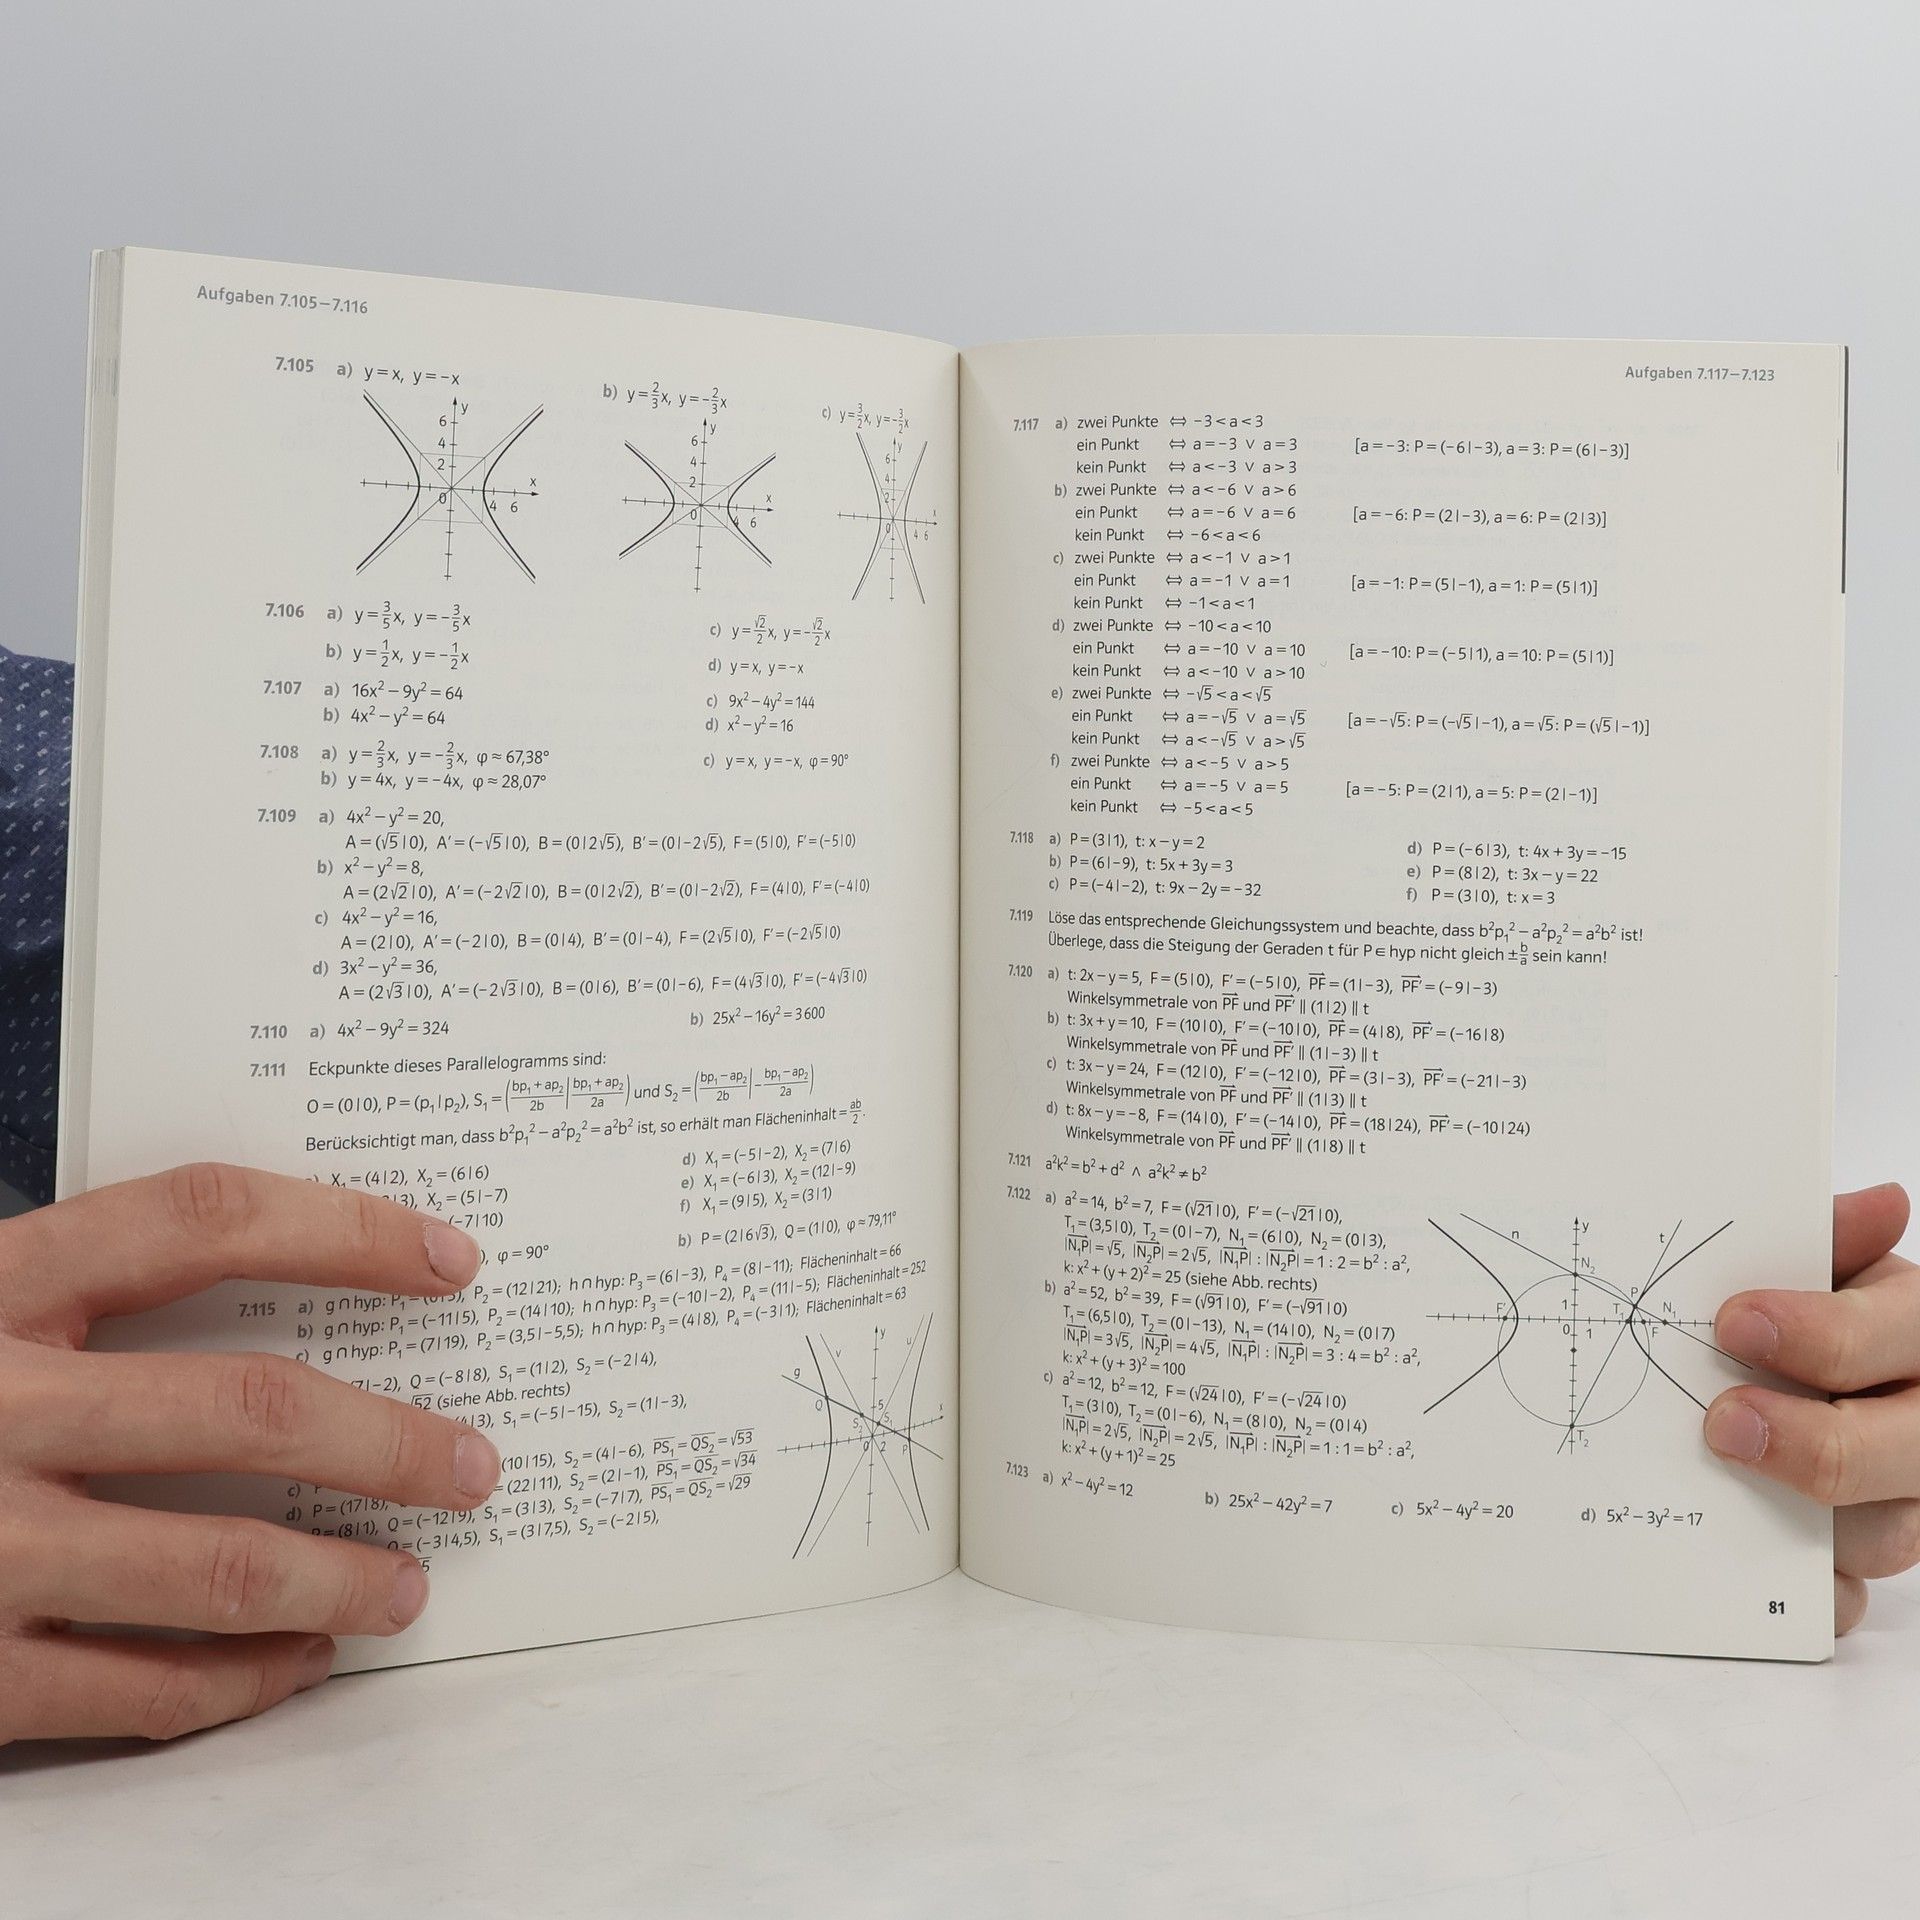 Aufgaben 7.105–7.116
7.105 a) y=x, y=−x b) y=2/3x, y=−2/3x c) y=3/2x, y=−3/2x
7.106 a) y=3/5x, y=−3/5x c) y=√2/2x, y=−√2/2x
b) y=1/2x, y=−1/2x d) y=x, y=−x
7.107 a) 16x²−9y²=64 c) 9x²−4y²=144
b) 4x²−y²=64 d) x²−y²=16
7.108 a) y=2/3x, y=−2/3x, φ≈67,38° c) y=x, y=−x, φ=90°
b) y=4x, y=−4x, φ≈28,07°
7.109 a) 4x²−y²=20,
A=(√5|0), A′=(−√5|0), B=(0|2√5), B′=(0|−2√5), F=(5|0), F′=(−5|0)
b) x²−y²=8,
A=(2√2|0), A′=(−2√2|0), B=(0|2√2), B′=(0|−2√2), F=(4|0), F′=(−4|0)
c) 4x²−y²=16,
A=(2|0), A′=(−2|0), B=(0|4), B′=(0|−4), F=(2√5|0), F′=(−2√5|0)
d) 3x²−y²=36,
A=(2√3|0), A′=(−2√3|0), B=(0|6), B′=(0|−6), F=(4√3|0), F′=(−4√3|0)
7.110 a) 4x²−9y²=324 b) 25x²−16y²=3600
7.111 Eckpunkte dieses Parallelogramms sind:
O=(0|0), P=(p₁|p₂), S₁=(bp₁+ap₂/2b|bp₁+ap₂/2a) und S₂=(bp₁−ap₂/2b|−bp₁−ap₂/2a)
Berücksichtigt man, dass b²p₁²−a²p₂²=a²b² ist, so erhält man Flächeninhalt=ab/2.
X₁=(4|2), X₂=(6|6) d) X₁=(−5|−2), X₂=(7|6)
|3), X₂=(5|−7) e) X₁=(−6|3), X₂=(12|−9)
(−7|10) f) X₁=(9|5), X₂=(3|1)
), φ=90° b) P=(2|6√3), Q=(1|0), φ≈79,11°
7.115 a) g∩hyp: P₁= P₂=(12|21); h∩hyp: P₃=(6|−3), P₄=(8|−11); Flächeninhalt=66
b) g∩hyp: P₁=(−11|5), P₂=(14|10); h∩hyp: P₃=(−10|−2), P₄=(11|−5); Flächeninhalt=252
c) g∩hyp: P₁=(7|19), P₂=(3,5|−5,5); h∩hyp: P₃=(4|8), P₄=(−3|1); Flächeninhalt=63
|−2), Q=(−8|8), S₁=(1|2), S₂=(−2|4),
√52 (siehe Abb. rechts)
|3), S₁=(−5|−15), S₂=(1|−3),
(10|15), S₂=(4|−6), PS₁=QS₂=√53
c) =(22|11), S₂=(2|−1), PS₁=QS₂=√34
d) P=(17|8), Q=(−12|9), S₁=(3|3), S₂=(−7|7), PS₁=QS₂=√29
P=(8|1), Q=(−3|4,5), S₁=(3|7,5), S₂=(−2|5),
Aufgaben 7.117–7.123
7.117 a) zwei Punkte ⇔ −3<a<3
ein Punkt ⇔ a=−3 ∨ a=3 [a=−3: P=(−6|−3), a=3: P=(6|−3)]
kein Punkt ⇔ a<−3 ∨ a>3
b) zwei Punkte ⇔ a<−6 ∨ a>6
ein Punkt ⇔ a=−6 ∨ a=6 [a=−6: P=(2|−3), a=6: P=(2|3)]
kein Punkt ⇔ −6<a<6
c) zwei Punkte ⇔ a<−1 ∨ a>1
ein Punkt ⇔ a=−1 ∨ a=1 [a=−1: P=(5|−1), a=1: P=(5|1)]
kein Punkt ⇔ −1<a<1
d) zwei Punkte ⇔ −10<a<10
ein Punkt ⇔ a=−10 ∨ a=10 [a=−10: P=(−5|1), a=10: P=(5|1)]
kein Punkt ⇔ a<−10 ∨ a>10
e) zwei Punkte ⇔ −√5<a<√5
ein Punkt ⇔ a=−√5 ∨ a=√5 [a=−√5: P=(−√5|−1), a=√5: P=(√5|−1)]
kein Punkt ⇔ a<−√5 ∨ a>√5
f) zwei Punkte ⇔ a<−5 ∨ a>5
ein Punkt ⇔ a=−5 ∨ a=5 [a=−5: P=(2|1), a=5: P=(2|−1)]
kein Punkt ⇔ −5<a<5
7.118 a) P=(3|1), t: x−y=2 d) P=(−6|3), t: 4x+3y=−15
b) P=(6|−9), t: 5x+3y=3 e) P=(8|2), t: 3x−y=22
c) P=(−4|−2), t: 9x−2y=−32 f) P=(3|0), t: x=3
7.119 Löse das entsprechende Gleichungssystem und beachte, dass b²p₁²−a²p₂²=a²b² ist!
Überlege, dass die Steigung der Geraden t für P∈hyp nicht gleich ±b/a sein kann!
7.120 a) t: 2x−y=5, F=(5|0), F′=(−5|0), PF=(1|−3), PF′=(−9|−3)
Winkelsymmetrale von PF und PF′ ∥ (1|2) ∥ t
b) t: 3x+y=10, F=(10|0), F′=(−10|0), PF=(4|8), PF′=(−16|8)
Winkelsymmetrale von PF und PF′ ∥ (1|−3) ∥ t
c) t: 3x−y=24, F=(12|0), F′=(−12|0), PF=(3|−3), PF′=(−21|−3)
Winkelsymmetrale von PF und PF′ ∥ (1|3) ∥ t
d) t: 8x−y=−8, F=(14|0), F′=(−14|0), PF=(18|24), PF′=(−10|24)
Winkelsymmetrale von PF und PF′ ∥ (1|8) ∥ t
7.121 a²k²=b²+d² ∧ a²k²≠b²
7.122 a) a²=14, b²=7, F=(√21|0), F′=(−√21|0),
T₁=(3,5|0), T₂=(0|−7), N₁=(6|0), N₂=(0|3),
|N₁P|=√5, |N₂P|=2√5, |N₁P| : |N₂P|=1 : 2=b² : a²,
k: x²+(y+2)²=25 (siehe Abb. rechts)
b) a²=52, b²=39, F=(√91|0), F′=(−√91|0)
T₁=(6,5|0), T₂=(0|−13), N₁=(14|0), N₂=(0|7)
|N₁P|=3√5, |N₂P|=4√5, |N₁P| : |N₂P|=3 : 4=b² : a²,
k: x²+(y+3)²=100
c) a²=12, b²=12, F=(√24|0), F′=(−√24|0)
T₁=(3|0), T₂=(0|−6), N₁=(8|0), N₂=(0|4)
|N₁P|=2√5, |N₂P|=2√5, |N₁P| : |N₂P|=1 : 1=b² : a²,
k: x²+(y+1)²=25
7.123 a) x²−4y²=12 b) 25x²−42y²=7 c) 5x²−4y²=20 d) 5x²−3y²=17
81